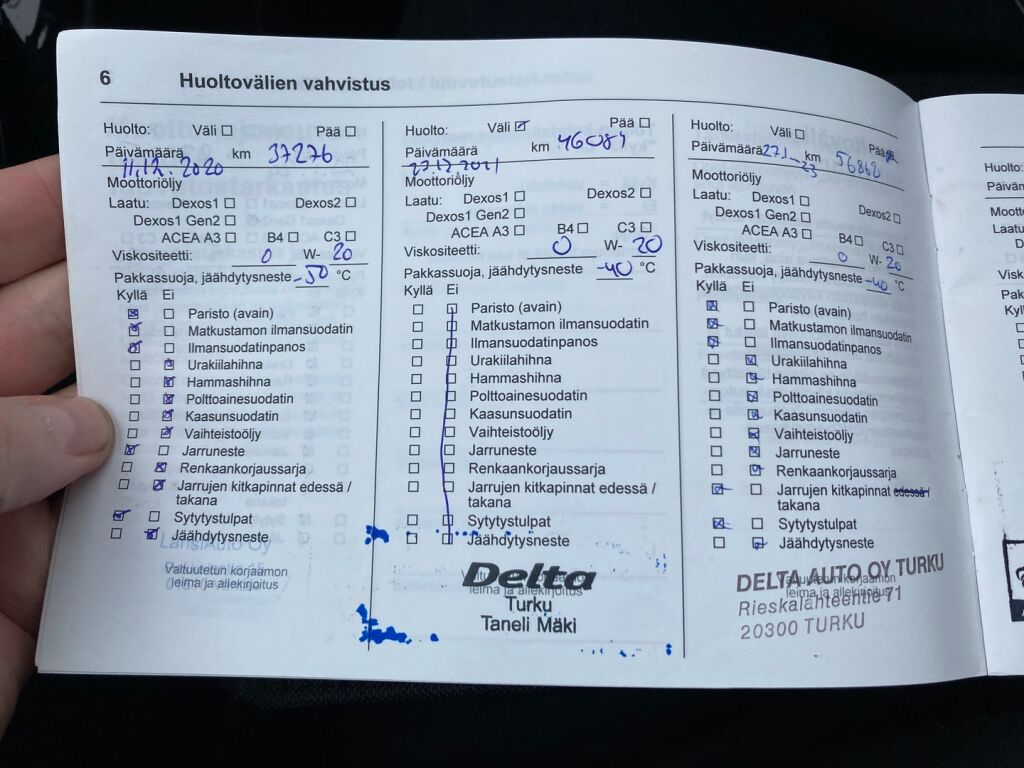 6 Huoltovälien vahvistus
Huolto: Väli Pää
Päivämäärä km 37276
11.12.2020
Moottoriöljy
Laatu: Dexos1 Dexos2
Dexos1 Gen2
ACEA A3 B4 C3
Viskositeetti: 0 W- 20
Pakkassuoja, jäähdytysneste -50 °C
Kyllä Ei
Paristo (avain)
Matkustamon ilmansuodatin
Ilmansuodatinpanos
Urakiilahihna
Hammashihna
Polttoainesuodatin
Kaasunsuodatin
Vaihteistoöljy
Jarruneste
Renkaankorjaussarja
Jarrujen kitkapinnat edessä /
takana
Sytytystulpat
Jäähdytysneste
LänsiAuto Oy
Valtuutetun korjaamon
leima ja allekirjoitus
Huolto: Väli Pää
Päivämäärä km 46084
27.12.2021
Moottoriöljy
Laatu: Dexos1 Dexos2
Dexos1 Gen2
ACEA A3 B4 C3
Viskositeetti: 0 W- 20
Pakkassuoja, jäähdytysneste -40 °C
Kyllä Ei
Paristo (avain)
Matkustamon ilmansuodatin
Ilmansuodatinpanos
Urakiilahihna
Hammashihna
Polttoainesuodatin
Kaasunsuodatin
Vaihteistoöljy
Jarruneste
Renkaankorjaussarja
Jarrujen kitkapinnat edessä /
takana
Sytytystulpat
Jäähdytysneste
Delta
leima ja allekirjoitus
Turku
Taneli Mäki
Huolto: Väli Pää
Päivämäärä 271-23 km 56862
Moottoriöljy
Laatu: Dexos1 Dexos2
Dexos1 Gen2
ACEA A3 B4 C3
Viskositeetti: 0 W- 20
Pakkassuoja, jäähdytysneste -40 °C
Kyllä Ei
Paristo (avain)
Matkustamon ilmansuodatin
Ilmansuodatinpanos
Urakiilahihna
Hammashihna
Polttoainesuodatin
Kaasunsuodatin
Vaihteistoöljy
Jarruneste
Renkaankorjaussarja
Jarrujen kitkapinnat edessä /
takana
Sytytystulpat
Jäähdytysneste
DELTA AUTO OY TURKU
Valtuutetun korjaamon
leima ja allekirjoitus
Rieskalähteentie 71
20300 TURKU
Huolto: